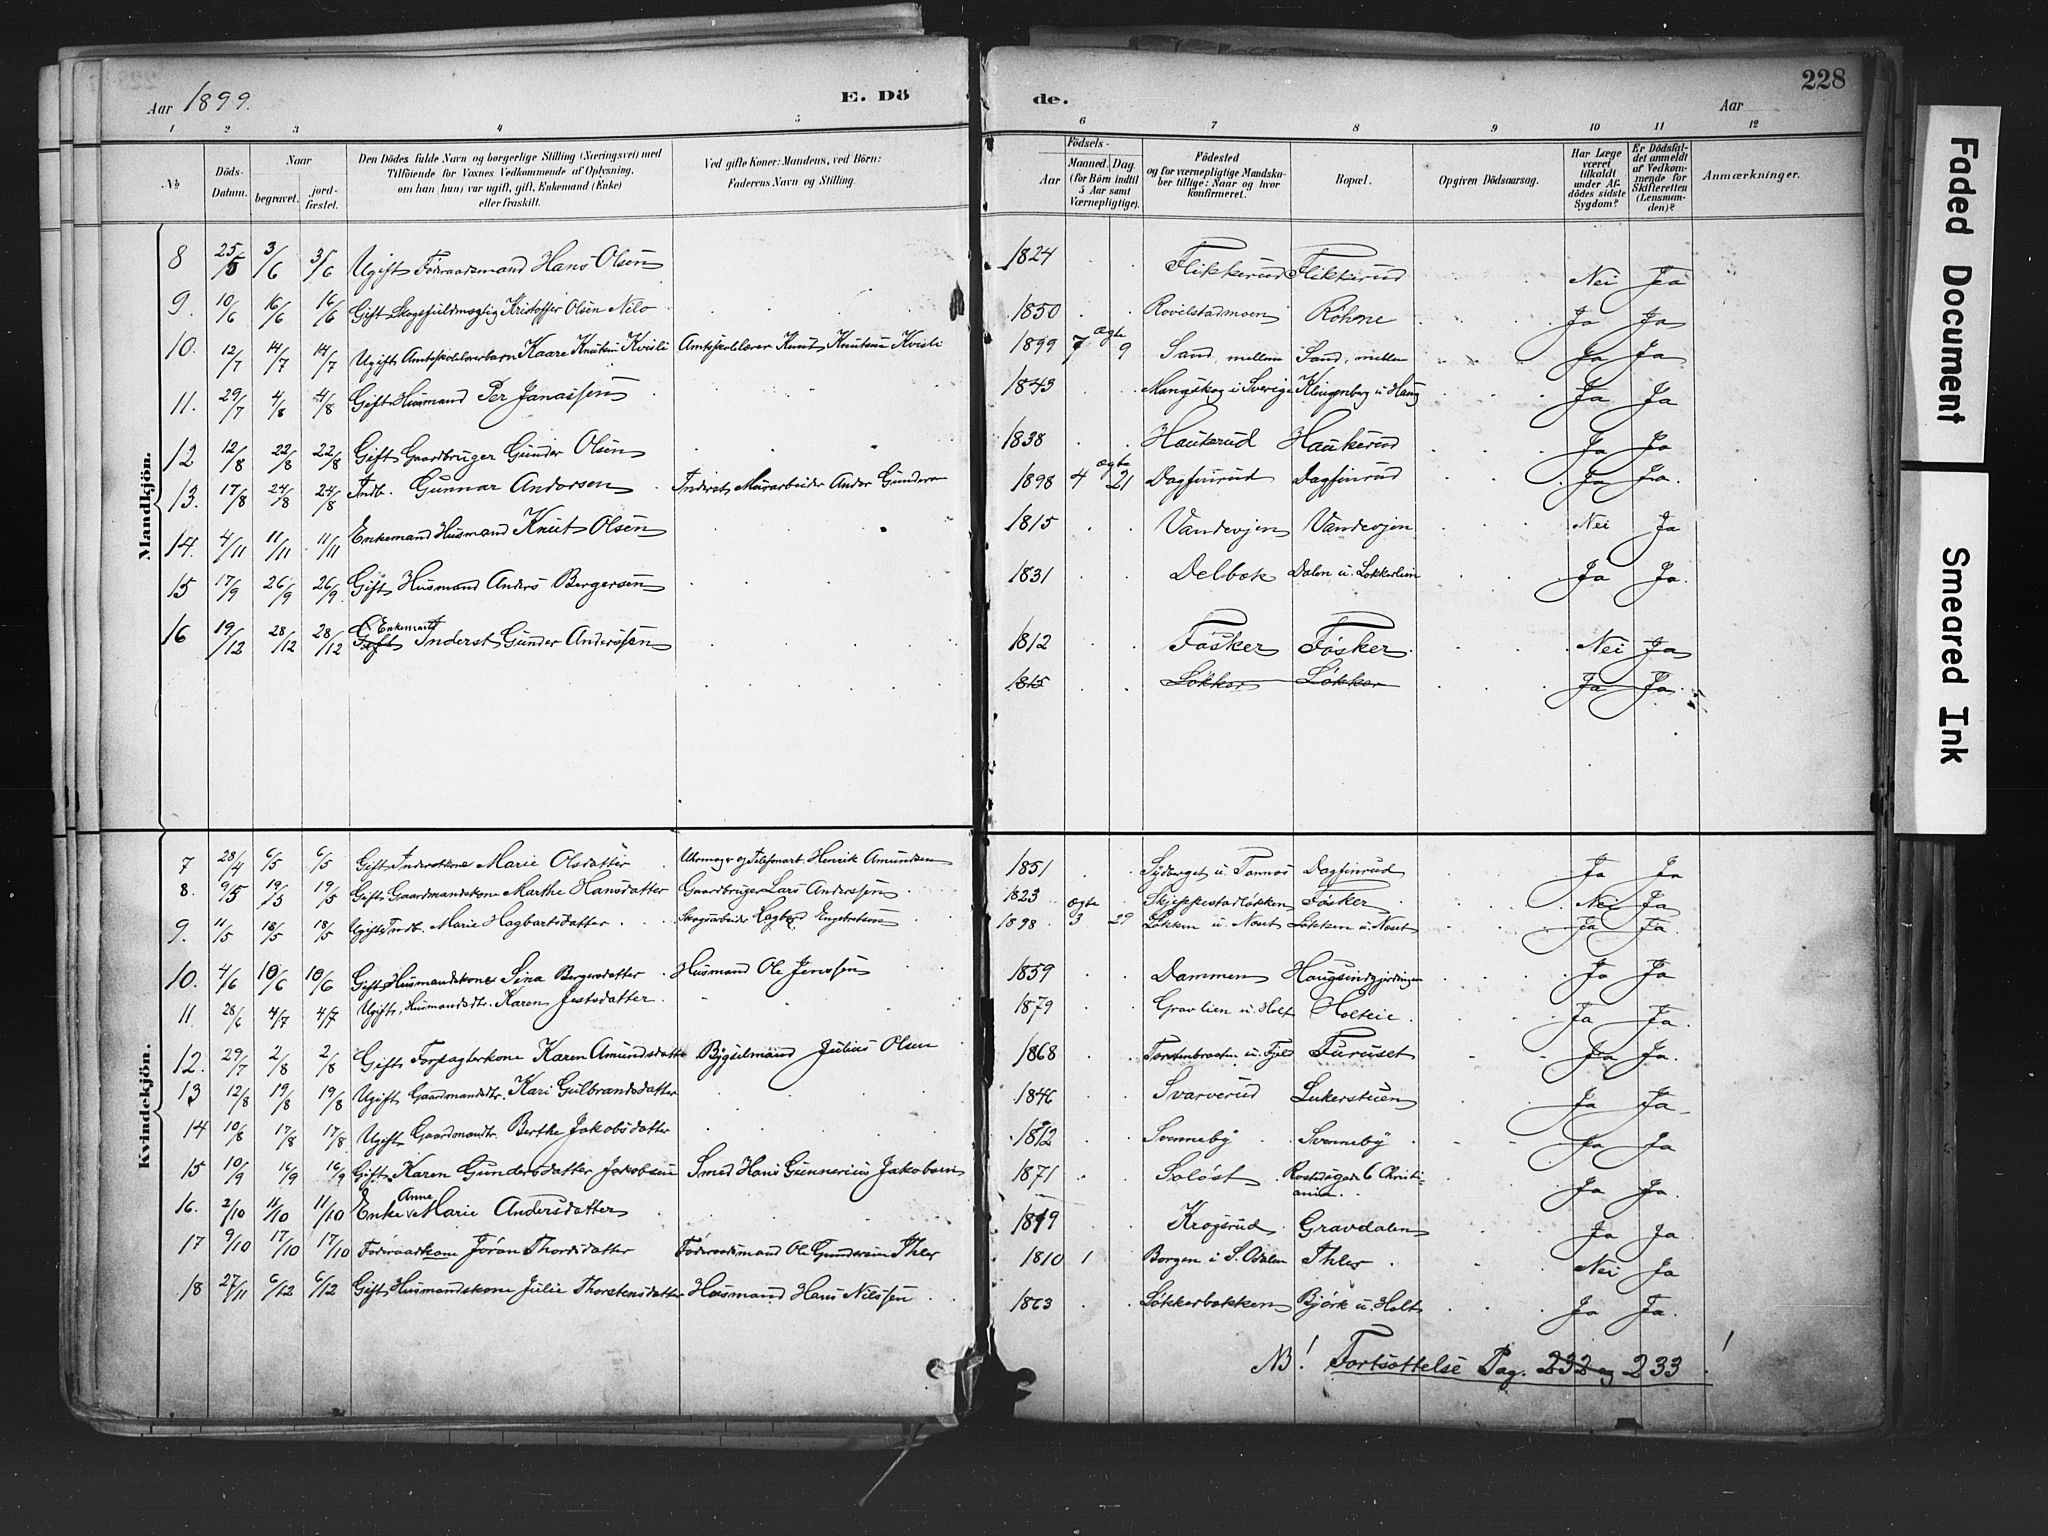 Aar 1899.
E. Dö
de.
Aar
228
1 2 3 4 5 6 7 8 9 10 11 12
№
Döds-Datum.
Naar
begravet.
jord-fæstet.
Den Dödes fulde Navn og borgerlige Stilling (Næringsvei) med
Tilföiende for Voxnes Vedkommende af Oplysning,
om han (hun) var ugift, gift, Enkemand (Enke)
eller fraskilt.
Ved gifte Koner: Mandens, ved Börn:
Faderens Navn og Stilling.
Födsels-
Aar
Maaned. Dag.
(for Börn indtil
5 Aar samt
Værnepligtige).
Födested
og for værnepligtige Mandska-
ber tillige: Naar og hvor
konfirmeret.
Bopæl.
Opgiven Dödsaarsag.
Har Læge
været
tilkaldt
under Af-
dödes sidste
Sygdom?
Er Dödsfal-
det anmeldt
af Vedkom-
mende for
Skifteretten
(Lensman-
den)?
Anmærkninger.
Mandkjön.
8 25/5 3/6 3/6 Ugift Föderaadsmand Hans Olsen 1824 Flikkerud Flikkerud Nei Ja
9. 10/6 16/6 16/6 Gift Skogsfuldmægtig Kristoffer Olsen Nilo 1850 Rovelstadmoen Röhne Ja Ja
10. 12/7 14/7 14/7 Ugift Amtskolelærerbarn Kaare Knutsen Kvisli Amtskolelærer Knut Knutsen Kvisli 1899 7 ægte 9 Sand, mellem Sand, mellem Ja Ja
11. 29/7 4/8 4/8 Gift Husmand Per Janassen 1843 Mangskog i Sverige Klingenberg u Haug Ja Ja
12 12/8 22/8 22/8 Gift Gaardbruger Gunder Olsen 1838 Haukerud Haukerud Ja Ja
13. 17/8 24/8 24/8 Indb. Gunnar Andersen Inderst Murarbeider Ander Gundersen 1898 4 ægte 21 Dagfinrud Dagfinrud Ja Ja
14. 4/11 11/11 11/11 Enkemand Husmand Knut Olsen 1815 Vandevjen Vandevjen Nei Ja
15 17/9 26/9 26/9 Gift Husmand Anders Bergersen 1831 Delbæk Dalen u. Løkkerlien Ja Ja.
16 19/12 28/12 28/12 Gift Enkemand Inderst Gunder Anderssen 1812 Fösker Fösker Nei Ja
1815 Lökker Lökker Ja Ja
Kvindekjön.
7 28/4 6/5 6/5 Gift Inderstkone Marie Olsdatter Uhrmager og Telefonarb. Henrik Amundsen 1851 Sydberget u. Tannæs Dagfinrud Ja Ja
8. 9/5 19/5 19/5 Gift Gaardmandskone Marthe Hansdatter Gaardbruger Lars Anderssen 1823 Skjeppestadlökken Fösker Nei Ja
9. 11/5 18/5 18/5 Ugift Indb. Marie Hagbartsdatter Skogsarbeider Hagbard Engebretsen 1898 ægte 3 29 Løkken u Næset Løkken u. Næset Ja Ja
10. 4/6 10/6 10/6 Gift Husmandskone Sina Bergersdatter Husmand Ole Jenssen 1859 Dammen Haugsindgjerdingen Ja Ja
11 28/6 4/7 4/7 Ugift, Husmandsdtr. Karen Jestsdatter 1879 Gravlien u. Holt Holteie Ja Ja.
12. 29/7 2/8 2/8 Gift Forpagterkone Karen Amundsdatter Bygselmand Julius Olsen 1868 Torstenbraaten u. Fjeld Furuset Ja Ja.
13 12/8 19/8 19/8 Ugift Gaardmandsdtr. Kari Gulbrandsdatter 1846 Svarverud Lukerstuen Ja Ja
14 10/8 17/8 17/8 Ugift Gaardmandtr. Berthe Jakobsdatter 1812 Svenneby Svenneby Ja Ja
15 10/9 16/9 16/9 Gift Karen Gundersdatter Jakobsen Smed Hans Gunnerius Jakobsen 1871 Soløst Rostedsgade 6 Christiania Ja Ja.
16. 2/10 11/10 11/10 Enke Anne Marie Andersdatter 1819 Krogsrud Gravdalen Ja Ja
17 9/10 17/10 17/10 Föderaadkone Jøran Thordsdatter Föderaadsmand Ole Gundersen Ihler 1810 1 Borgen i S. Odalen Ihler Nei Ja
18 27/11 6/12 6/12 Gift Husmandskone Julie Thorstensdatter Husmand Hans Nilssen 1863 Løkkerbakken Bjørk u. Holt Ja Ja.
NB! Fortsættelse Pag. 232 og 233!
Faded Document
Smeared Ink